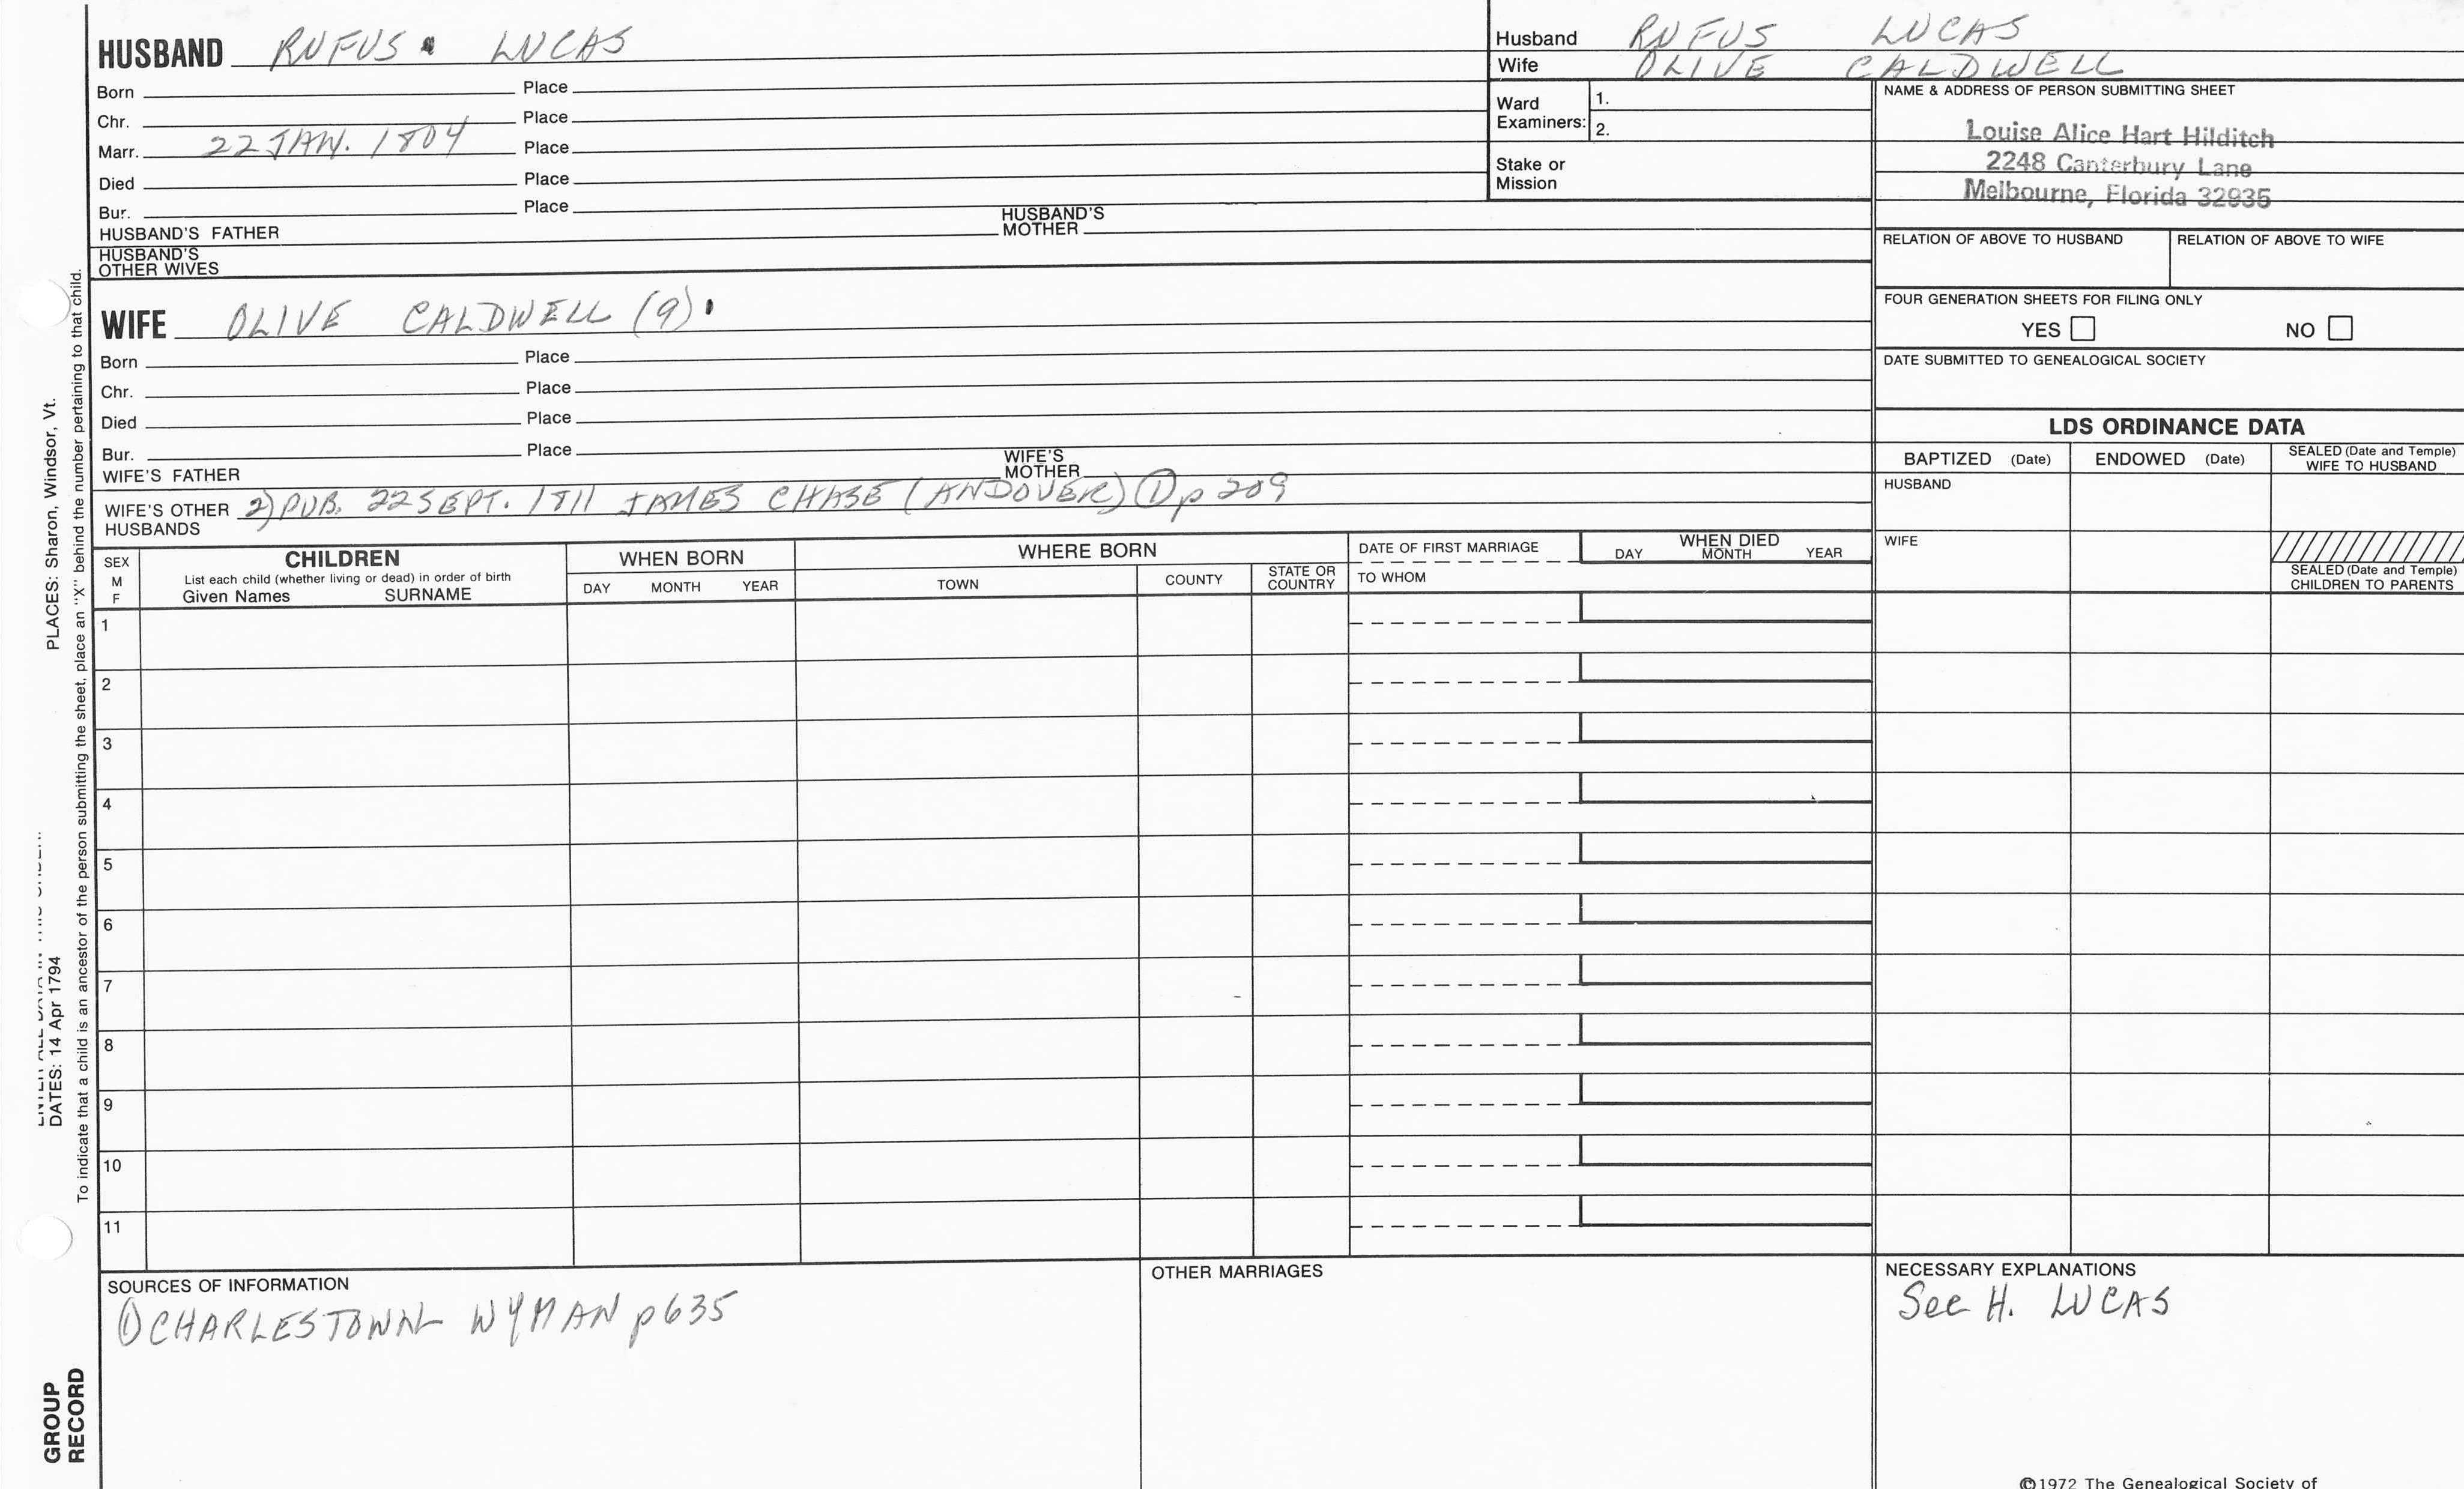 HUSBAND RUFUS LUCAS
Born Place
Chr. Place
Marr. 22 JAN. 1804 Place
Died Place
Bur. Place
HUSBAND'S FATHER HUSBAND'S MOTHER
HUSBAND'S OTHER WIVES
Husband RUFUS LUCAS
Wife OLIVE CALDWELL
Ward Examiners: 1.
2.
Stake or Mission
NAME & ADDRESS OF PERSON SUBMITTING SHEET
Louise Alice Hart Hilditch
2248 Canterbury Lane
Melbourne, Florida 32935
RELATION OF ABOVE TO HUSBAND RELATION OF ABOVE TO WIFE
FOUR GENERATION SHEETS FOR FILING ONLY
YES NO
DATE SUBMITTED TO GENEALOGICAL SOCIETY
WIFE OLIVE CALDWELL (9)
Born Place
Chr. Place
Died Place
Bur. Place
WIFE'S FATHER WIFE'S MOTHER
WIFE'S OTHER HUSBANDS 2) PUB. 22 SEPT. 1811 JAMES CHASE (ANDOVER) ① p 209
LDS ORDINANCE DATA
BAPTIZED (Date) ENDOWED (Date) SEALED (Date and Temple) WIFE TO HUSBAND
HUSBAND
WIFE
SEALED (Date and Temple) CHILDREN TO PARENTS
SEX M F
CHILDREN
List each child (whether living or dead) in order of birth
Given Names SURNAME
WHEN BORN
DAY MONTH YEAR
WHERE BORN
TOWN COUNTY STATE OR COUNTRY
DATE OF FIRST MARRIAGE
TO WHOM
WHEN DIED
DAY MONTH YEAR
1
2
3
4
5
6
7
8
9
10
11
SOURCES OF INFORMATION
① CHARLESTOWN WYMAN p635
OTHER MARRIAGES
NECESSARY EXPLANATIONS
See H. LUCAS
©1972 The Genealogical Society of
PLACES: Sharon, Windsor, Vt.
DATES: 14 Apr 1794
To indicate that a child is an ancestor of the person submitting the sheet, place an "X" behind the number pertaining to that child.
GROUP
RECORD